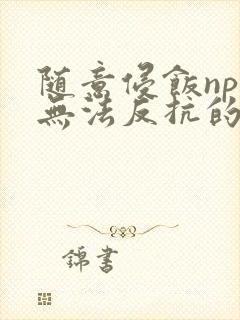 随意侵飯np
無法反抗的
錦書